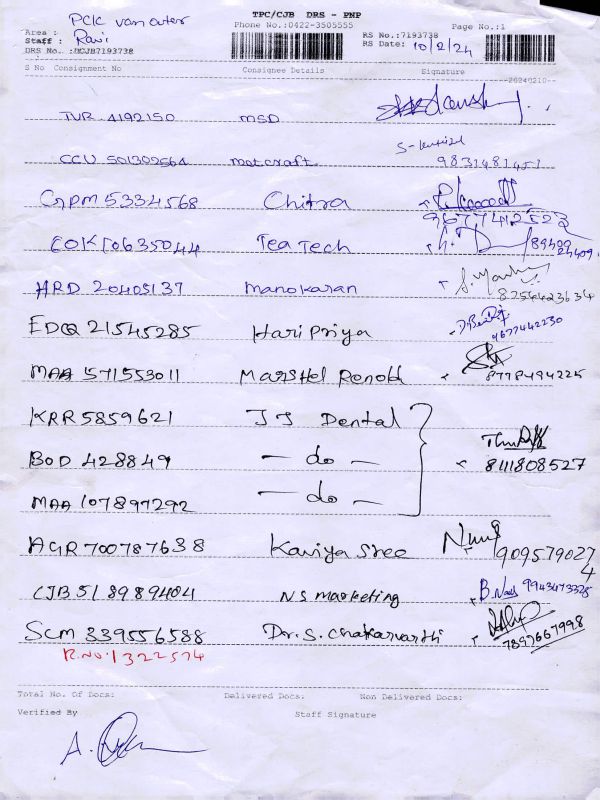 TPC/CJB DRS - PNP
PCK van outer
Phone No.:0422-3505555
Page No.:1
Area :
Staff : Ravi
RS No.:7193738
RS Date: 10/2/24
DRS No. :DCJB7193738
S No Consignment No Consignee Details Signature
20240210
TVR 4192150 MSD
CCU 501302564 matcraft 9831481451
GPM 5334568 Chitra 9677412523
COK 10635044 Tea Tech
HRD 20405137 Manokaran 8254423634
EDQ 21545285 Hari Priya 9677442230
MAA 571553011 8778494225
KRR 5859621 JJ Dental
BOD 428849 — do — 8111808527
MAA 107897292 — do —
AGR 700787638 Kaviya Sree 9095790274
CJB 518989404 NS Marketing 9943473325
SCM 339556588 Dr. S. Chakarvarthi 7897667998
R.No: 1322574
Total No. Of Docs: Delivered Docs: Non Delivered Docs:
Verified By Staff Signature